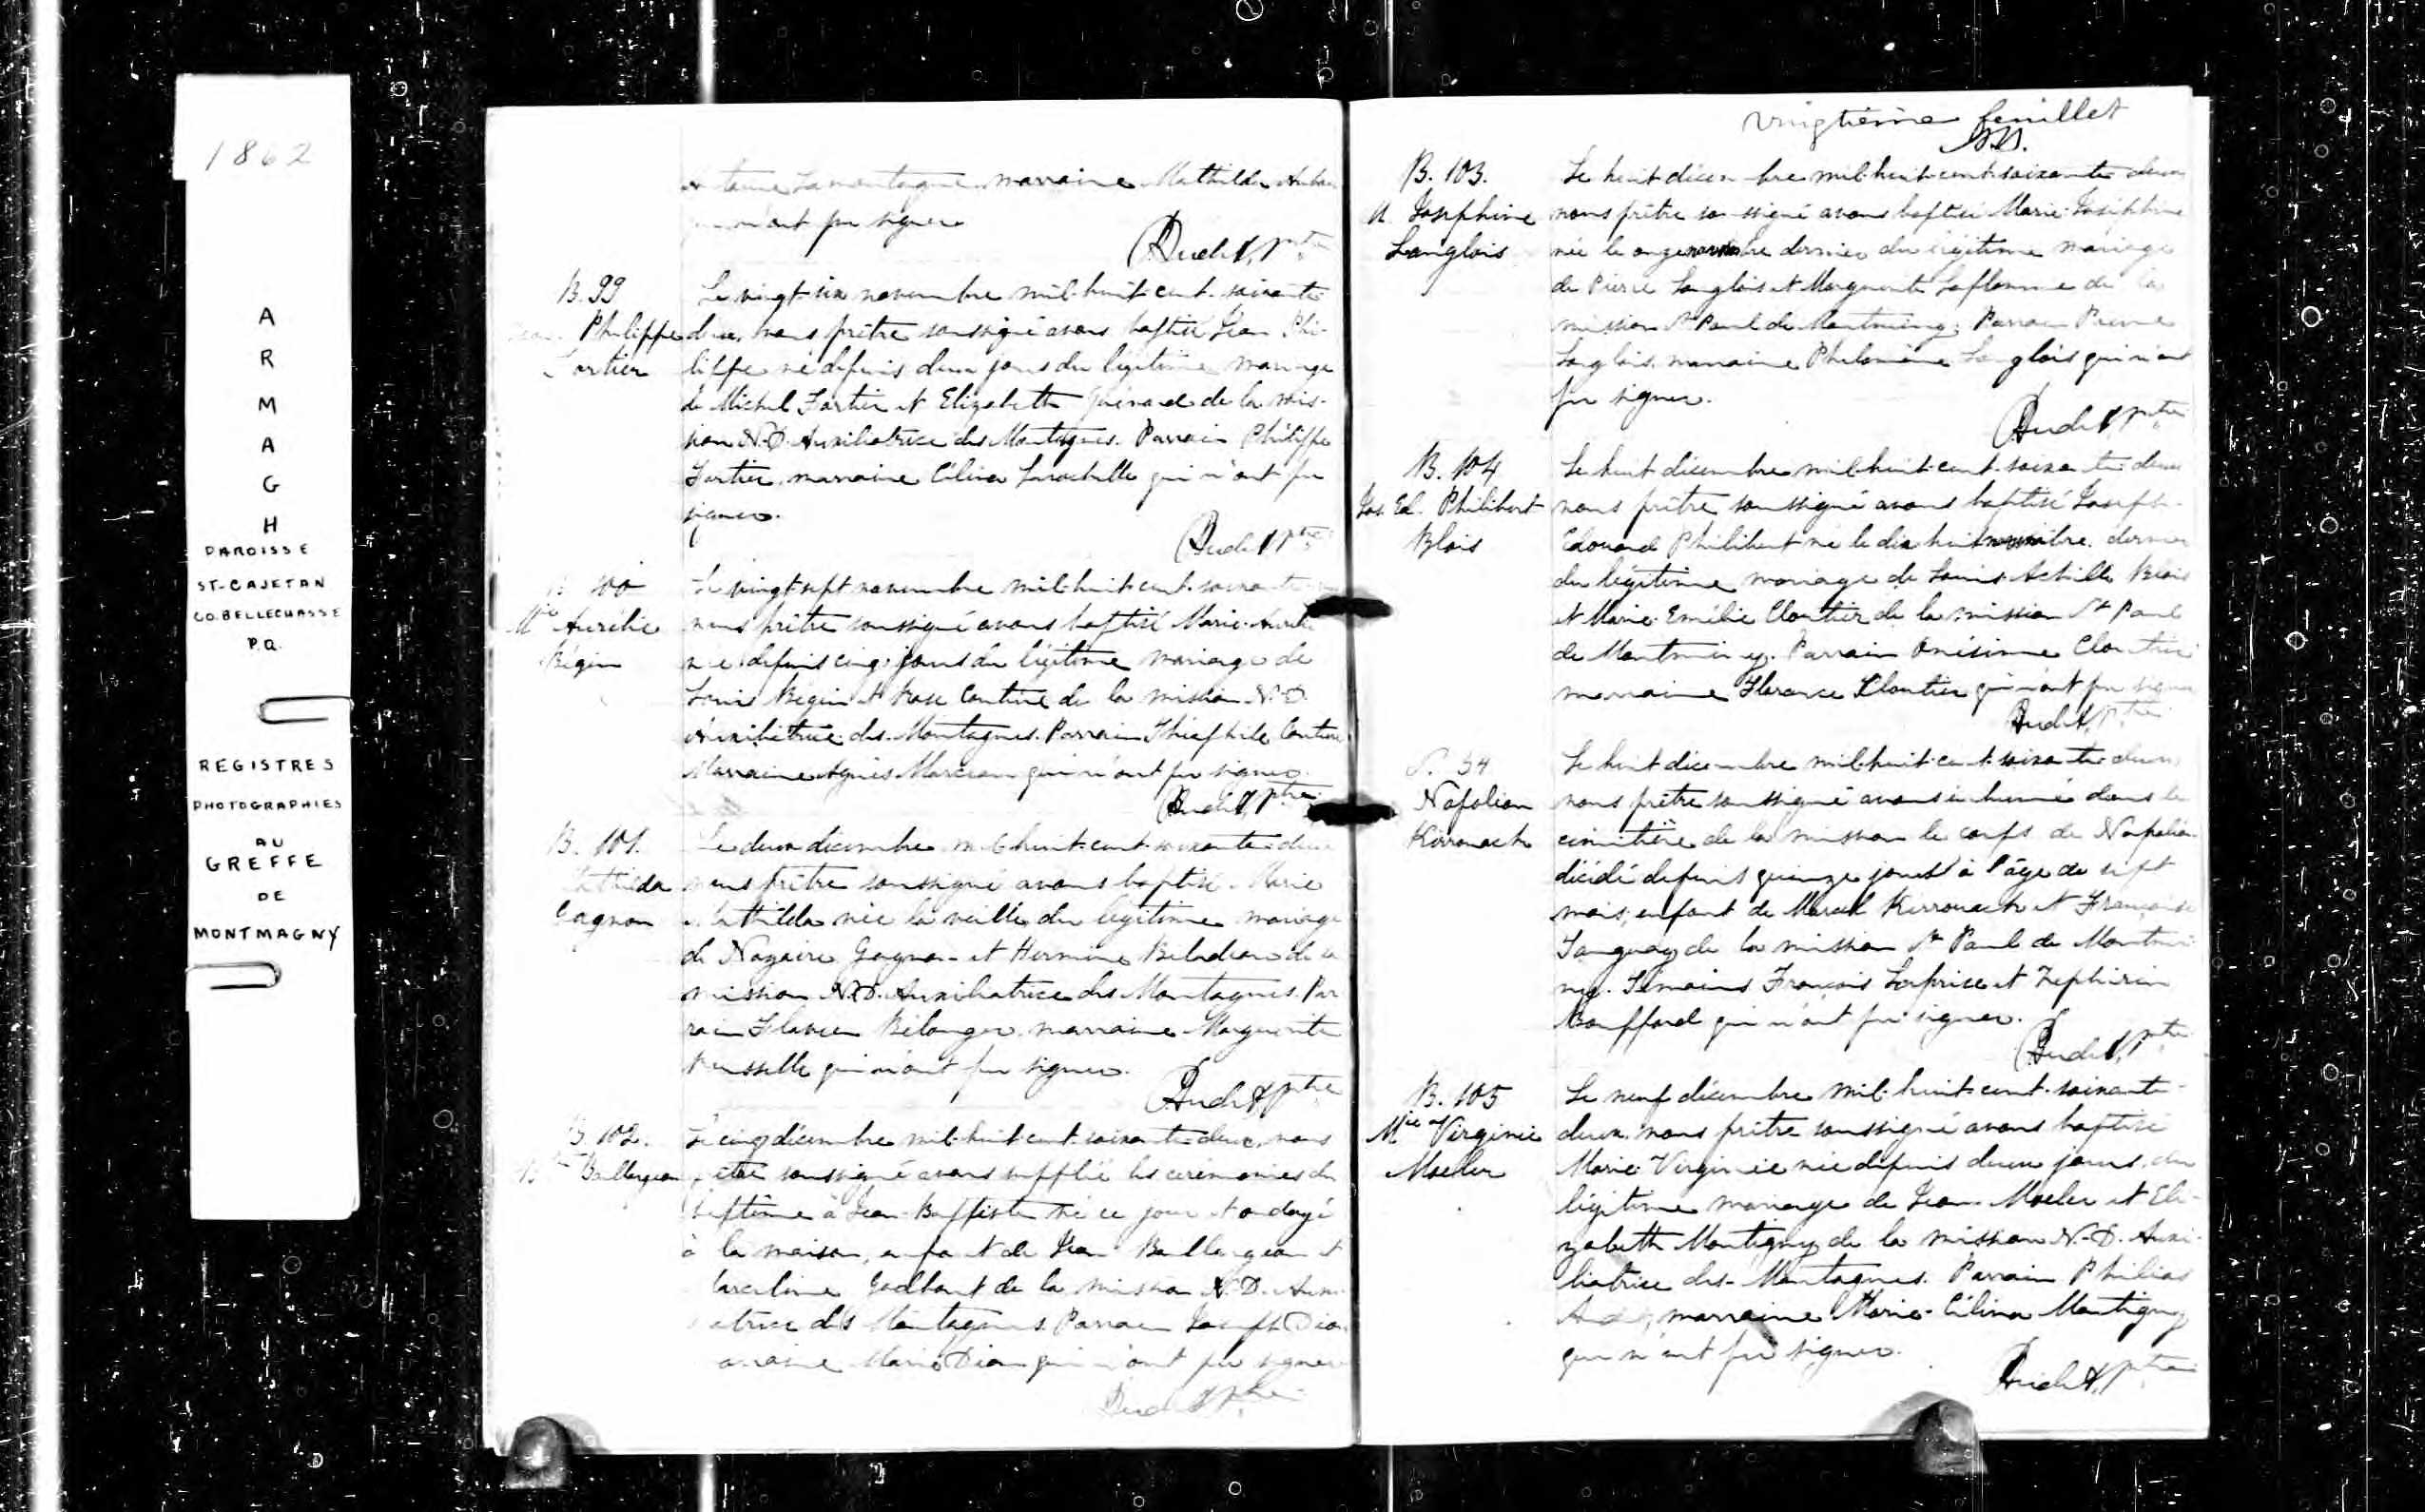 1862
ARMAGH
PAROISSE
ST-CAJETAN
CO. BELLECHASSE
P.Q.
REGISTRES
PHOTOGRAPHIES
AU
GREFFE
DE
MONTMAGNY
Lamontagne marraine Mathilde
n'ont pu signer
Ptre
B. 99
Philippe
Fortier
Le vingt-six novembre mil-huit-cent-soixante-
deux, nous prêtre soussigné avons baptisé Jean Phi-
lippe né depuis deux jours du légitime mariage
de Michel Fortier et Elizabeth de la mis-
sion N.-D. Auxiliatrice des Montagnes. Parrain Philippe
Fortier, marraine Célina Larochelle qui n'ont pu
signer.
Ptre
100
Mie Aurélie
Bégin
Le vingt-sept novembre mil-huit-cent-soixante
nous prêtre soussigné avons baptisé Marie-Aurélie
née depuis cinq jours du légitime mariage de
Louis Bégin et Rose Couture de la mission N.-D.
Auxiliatrice des Montagnes. Parrain Théophile Couture
Marraine Agnès Marceau qui n'ont pu signer.
Ptre
B. 101.
Mathilda
Gagnon
Le deux décembre mil-huit-cent-soixante-deux
nous prêtre soussigné avons baptisé Marie
Mathilda née la veille du légitime mariage
de Nazaire Gagnon et Hermine de la
mission N.D. Auxiliatrice des Montagnes. Par
rain Bélanger, marraine Marguerite
qui n'ont pu signer.
Ptre
B. 102.
Baillargeon
Le cinq décembre mil-huit-cent-soixante-deux, nous
prêtre soussigné avons suppléé les cérémonies du
baptême à Jean-Baptiste né ce jour et ondoyé
à la maison, enfant de Jean Baillargeon et
Marceline Godbout de la mission N.D. Auxi-
liatrice des Montagnes. Parrain Joseph Dion
marraine Marie Dion qui n'ont pu signer
Ptre
vingtième feuillet
B. 103.
M. Joséphine
Langlois
Le huit décembre mil-huit-cent-soixante-deux
nous prêtre soussigné avons baptisé Marie-Joséphine
née le onze novembre dernier du légitime mariage
de Pierre Langlois et Marguerite Laflamme de la
mission St Paul de Montminy. Parrain Pierre
Langlois, marraine Philomène Langlois qui n'ont
pu signer.
Ptre
B. 104
Jos. Ed. Philibert
Blais
Le huit décembre mil-huit-cent-soixante-deux
nous prêtre soussigné avons baptisé Joseph-
Edouard Philibert né le dix-huit novembre dernier
du légitime mariage de Louis Achille Blais
et Marie Emélie Cloutier de la mission St Paul
de Montminy. Parrain Onésime Cloutier
marraine Florence Cloutier qui n'ont pu signer
Ptre
S. 34
Napoléon
Kirouack
Le huit décembre mil-huit-cent-soixante-deux
nous prêtre soussigné avons inhumé dans le
cimetière de la mission le corps de Napoléon
décédé depuis quinze jours à l'âge de sept
mois, enfant de Marcel Kirrouack et Françoise
Tanguay de la mission St Paul de Montmi-
ny. Témoins François Laprise et Zephirin
Bouffard qui n'ont pu signer.
Ptre
B. 105
Mie Virginie
Moeler
Le neuf décembre mil-huit-cent-soixante-
deux nous prêtre soussigné avons baptisé
Marie Virginie née depuis deux jours, du
légitime mariage de Jean Moeler et Eli-
zabeth Montigny de la mission N.-D. Auxi-
liatrice des Montagnes. Parrain Philias
marraine Marie-Célina Montigny
qui n'ont pu signer.
Ptre